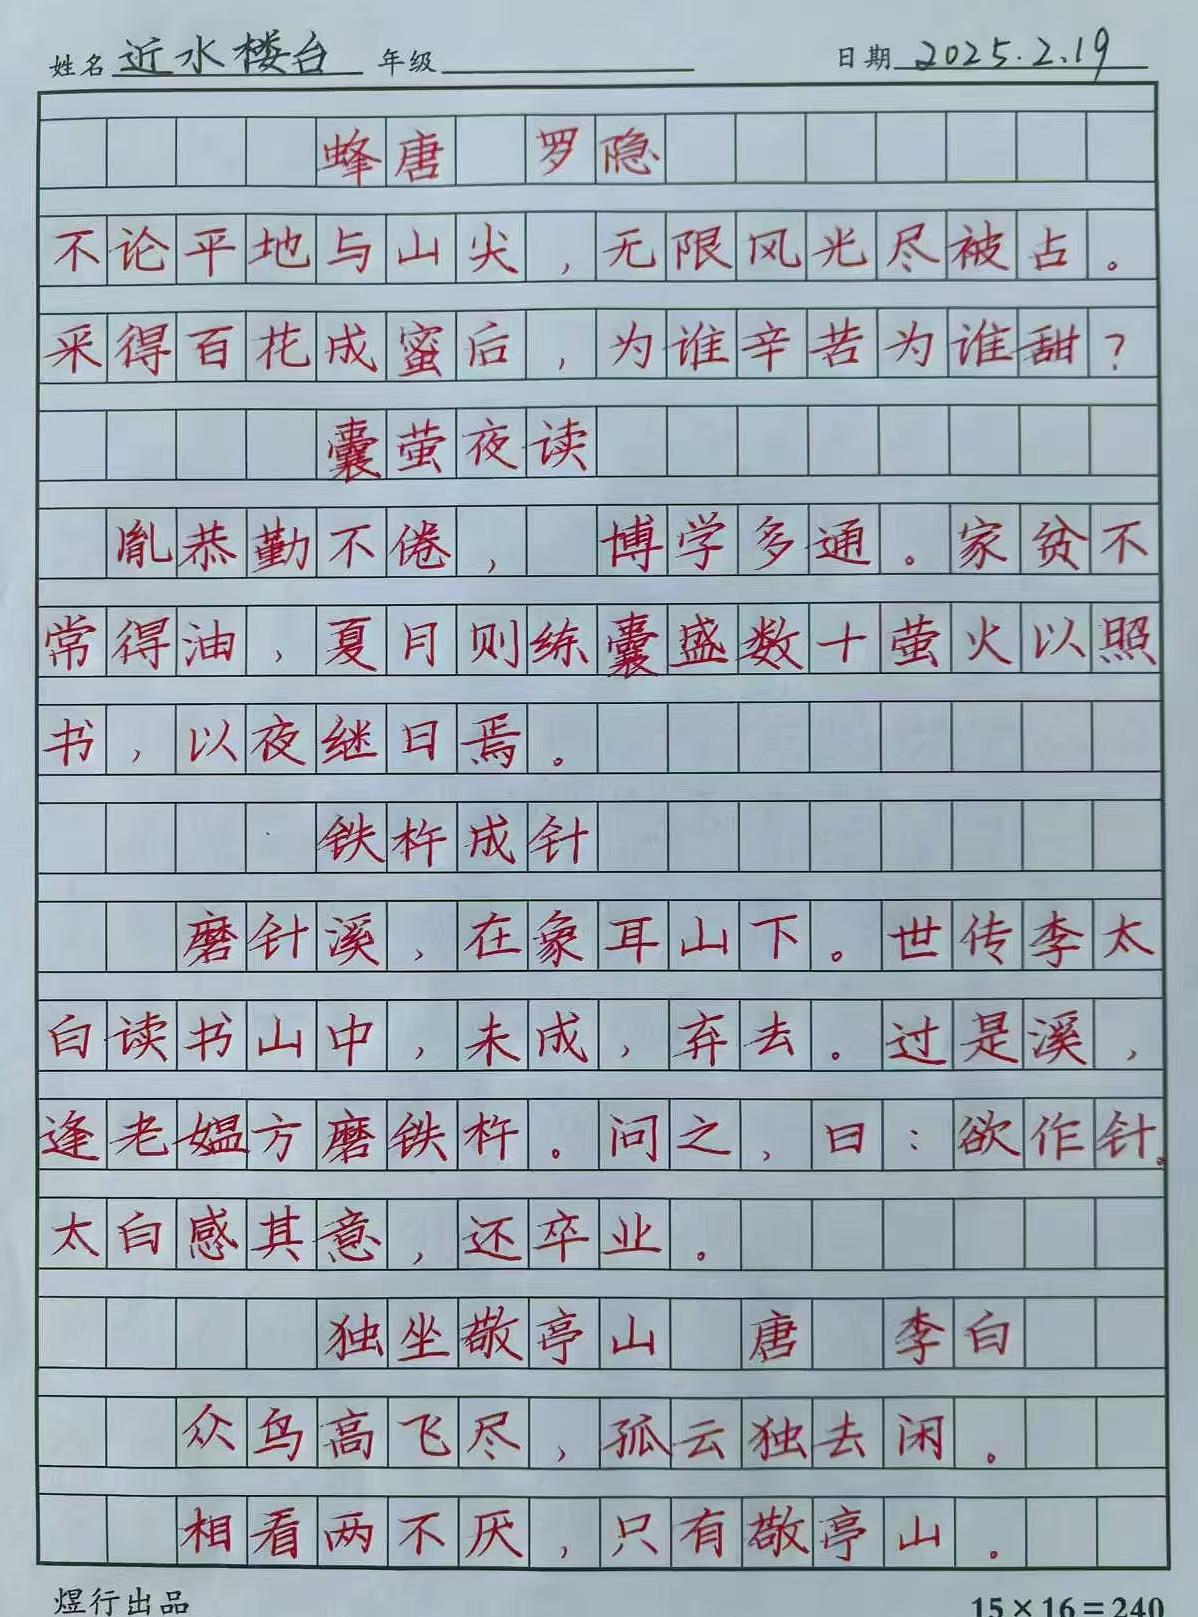 姓名 近水楼台 年级 日期 2025.2.19
蜂唐 罗隐
不论平地与山尖，无限风光尽被占。
采得百花成蜜后，为谁辛苦为谁甜？
囊萤夜读
胤恭勤不倦， 博学多通。家贫不
常得油，夏月则练囊盛数十萤火以照
书，以夜继日焉。
铁杵成针
磨针溪，在象耳山下。世传李太
白读书山中，未成，弃去。过是溪，
逢老媪方磨铁杵。问之，曰：欲作针。
太白感其意，还卒业。
独坐敬亭山 唐 李白
众鸟高飞尽，孤云独去闲。
相看两不厌，只有敬亭山。
煜行出品 15×16=240